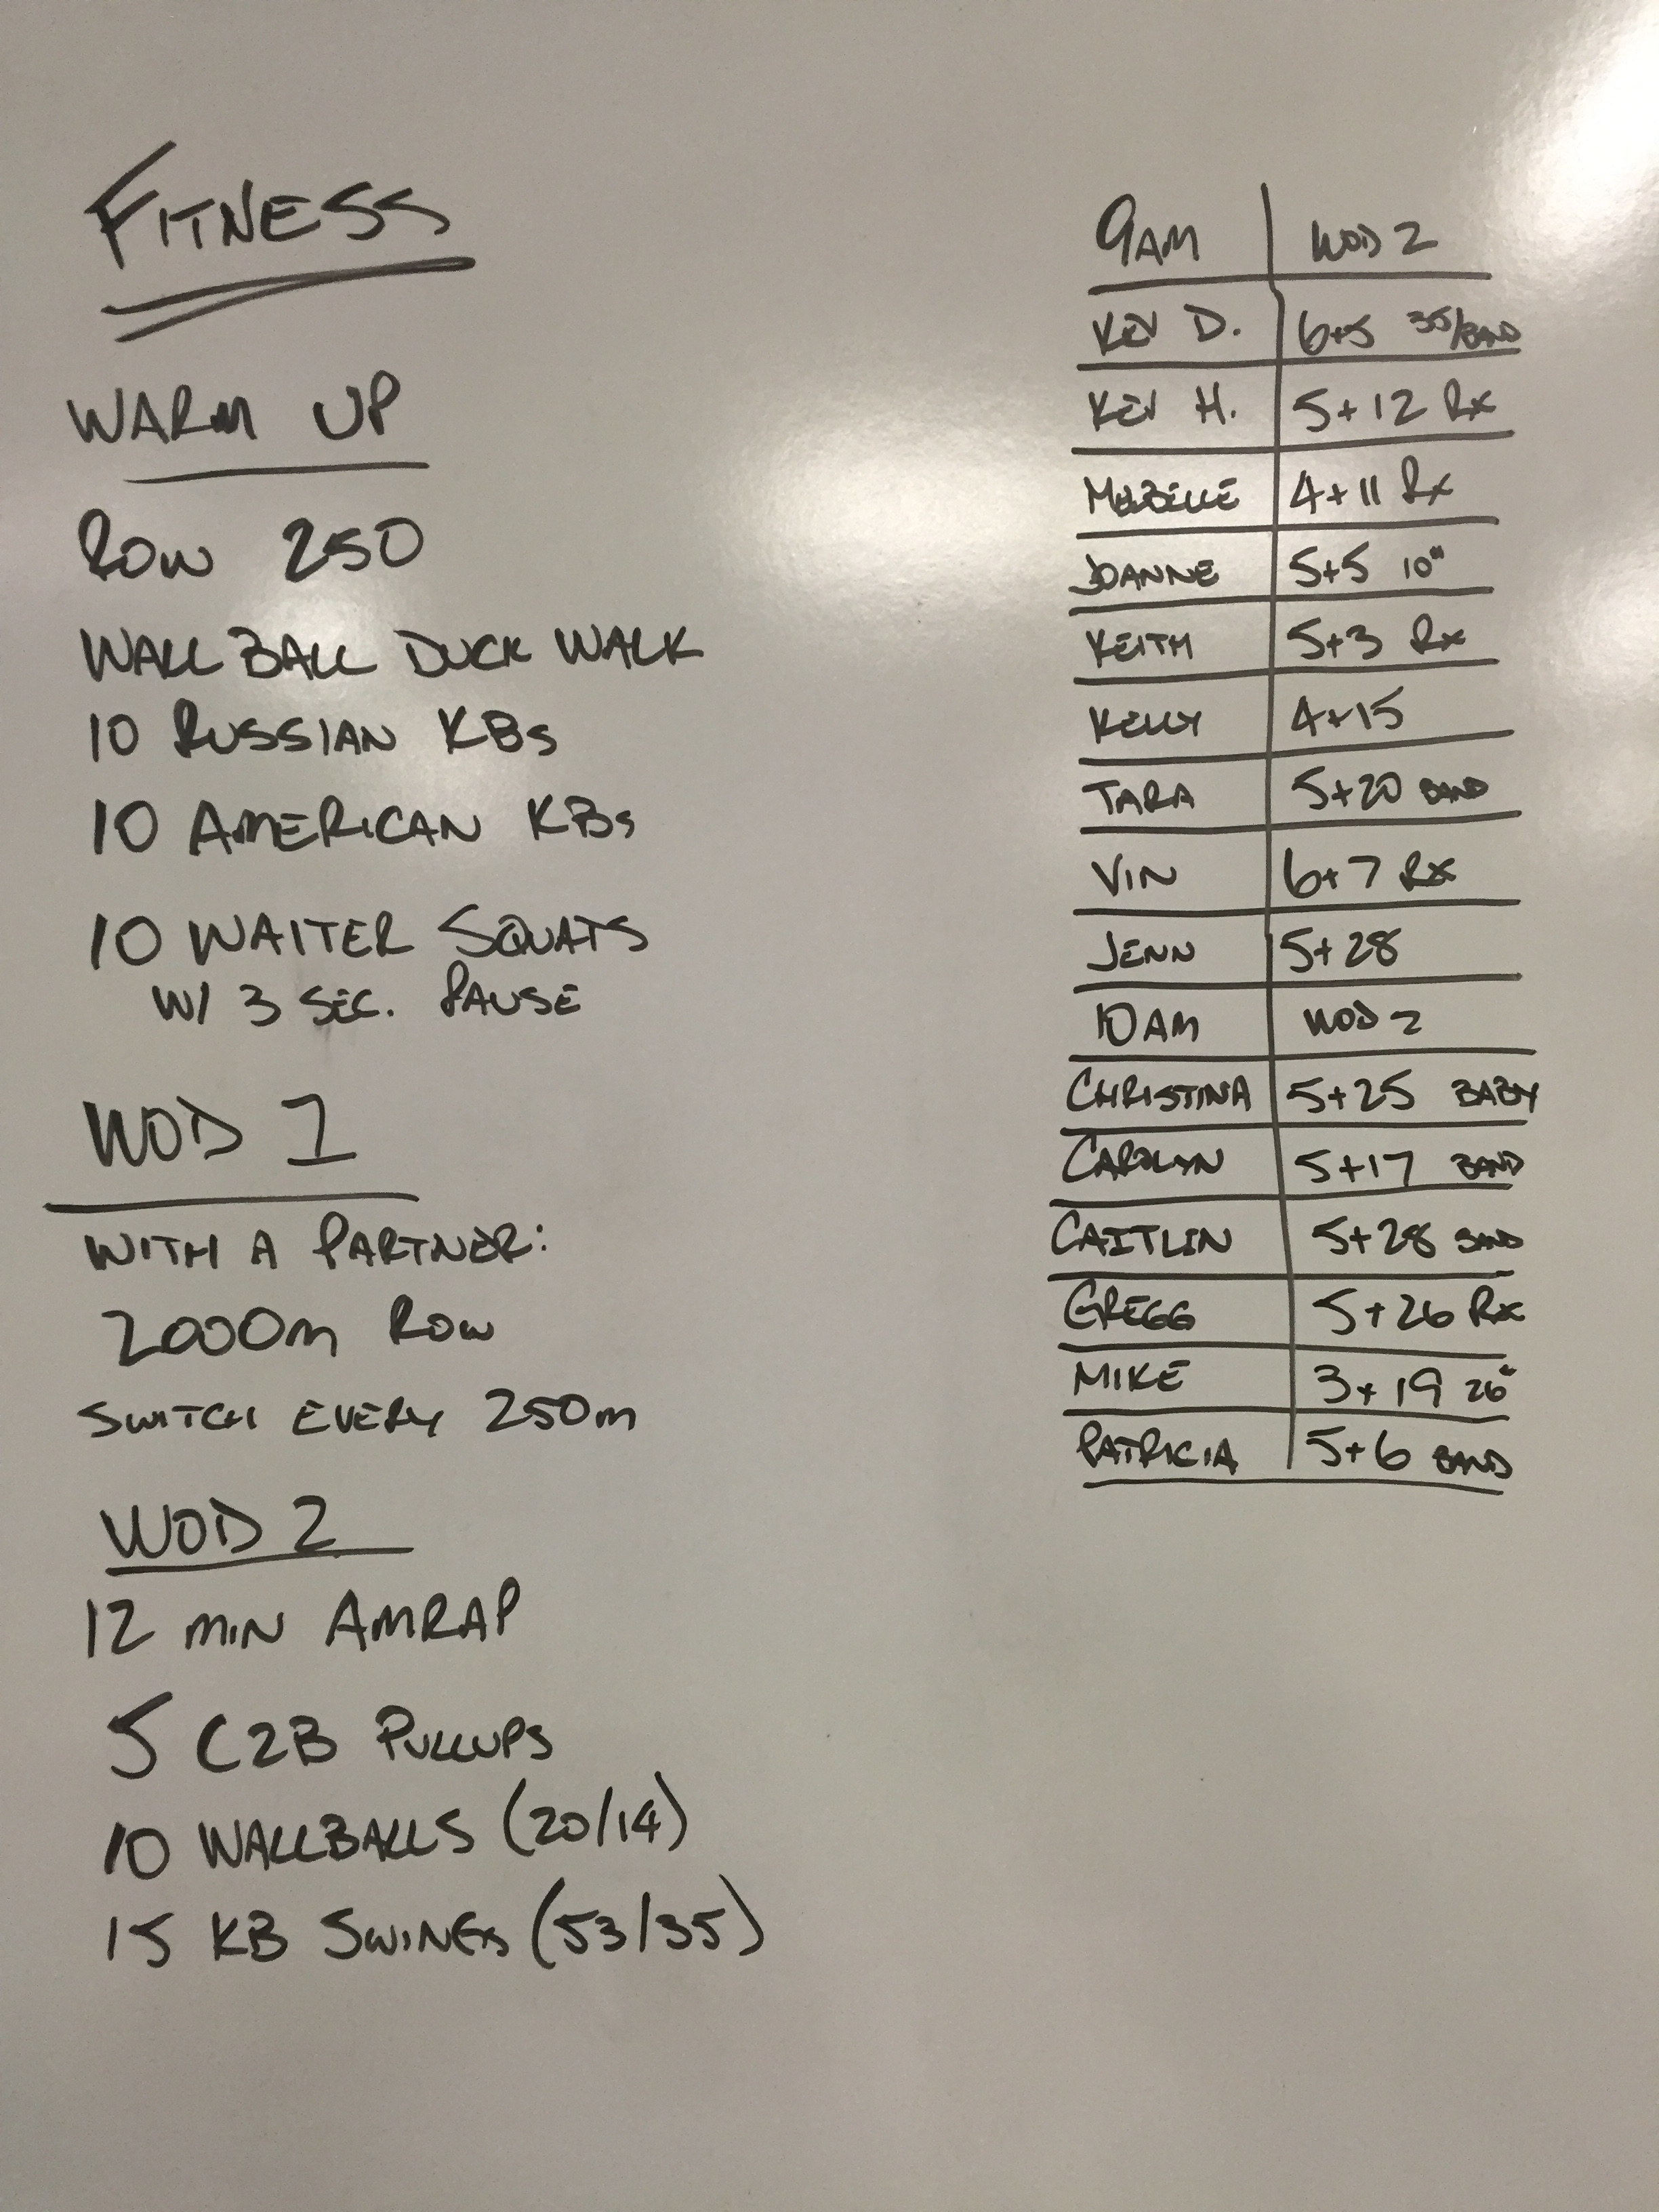 FITNESS
WARM UP
ROW 250
WALL BALL DUCK WALK
10 RUSSIAN KBs
10 AMERICAN KBs
10 WAITER SQUATS
W/ 3 SEC. PAUSE
WOD 1
WITH A PARTNER:
2000m ROW
SWITCH EVERY 250m
WOD 2
12 MIN AMRAP
5 C2B PULLUPS
10 WALLBALLS (20/14)
15 KB SWINGS (53/35)
9AM WOD 2
KEV D. 6+5 35/BAND
KEV H. 5+12 Rx
MELBELLE 4+11 Rx
JOANNE 5+5 10"
KEITH 5+3 Rx
KELLY 4+15
TARA 5+20 BAND
VIN 6+7 RX
JENN 5+28
10AM WOD 2
CHRISTINA 5+25 BABY
CAROLYN 5+17 BAND
CAITLIN 5+28 BAND
GREGG 5+26 Rx
MIKE 3+19 26"
PATRICIA 5+6 BAND